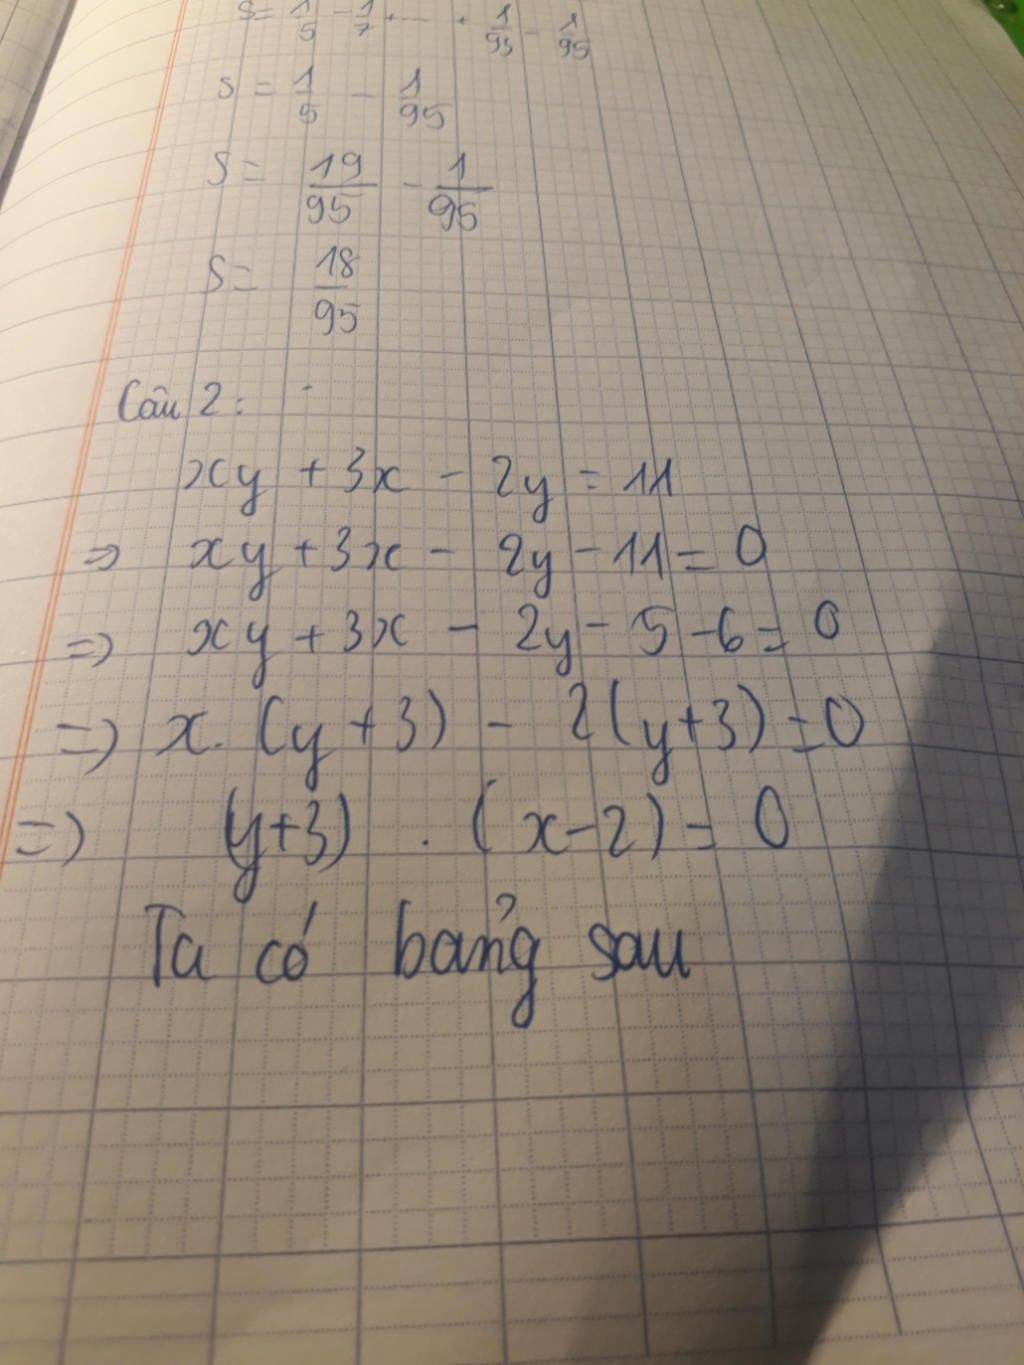 S = 1/5 - 1/7 + ... + 1/93 - 1/95
S = 1/5 - 1/95
S = 19/95 - 1/95
S = 18/95
Câu 2:
xy + 3x - 2y = 11
=> xy + 3x - 2y - 11 = 0
=> xy + 3x - 2y - 5 - 6 = 0
=> x. (y + 3) - 2(y+3) = 0
=> (y+3) . (x-2) = 0
Ta có bảng sau